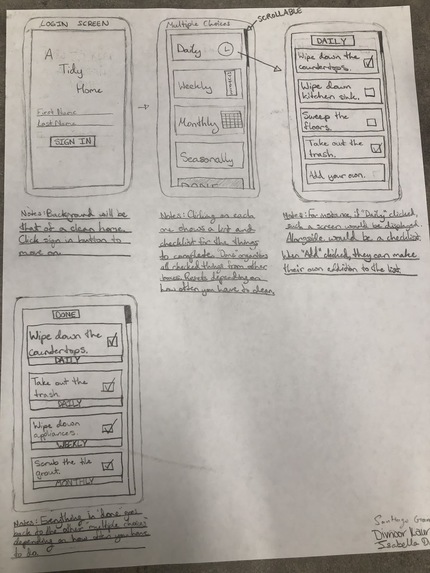 LOGIN SCREEN
A
Tidy
Home
First Name
Last Name
SIGN IN
Notes: Background will be
that of a clean house.
Click sign in button to
move on.
Multiple Choices
SCROLLABLE
Daily
Weekly
Monthly
Seasonally
DONE
Notes: Clicking on each
one shows a list and
checklist for the things
to complete. Done organizes
all checked things from other
boxes. Resets depending on
how often you have to clean.
DAILY
Wipe down the
countertops.
Wipe down
kitchen sink.
Sweep the
floors.
Take out the
trash.
Add your own.
Notes: For instance, if "Daily" clicked,
such a screen would be displayed.
Alongside would be a checklist.
When "Add" clicked, they can make
their own addition to the list.
DONE
Wipe down the
countertops.
DAILY
Take out the
trash.
DAILY
Wipe down
appliances.
WEEKLY
Scrub the tile
grout.
MONTHLY
Notes: Everything in "done" goes
back to the other "multiple choices"
depending on how often you have
to do.
Santiago
Isabella